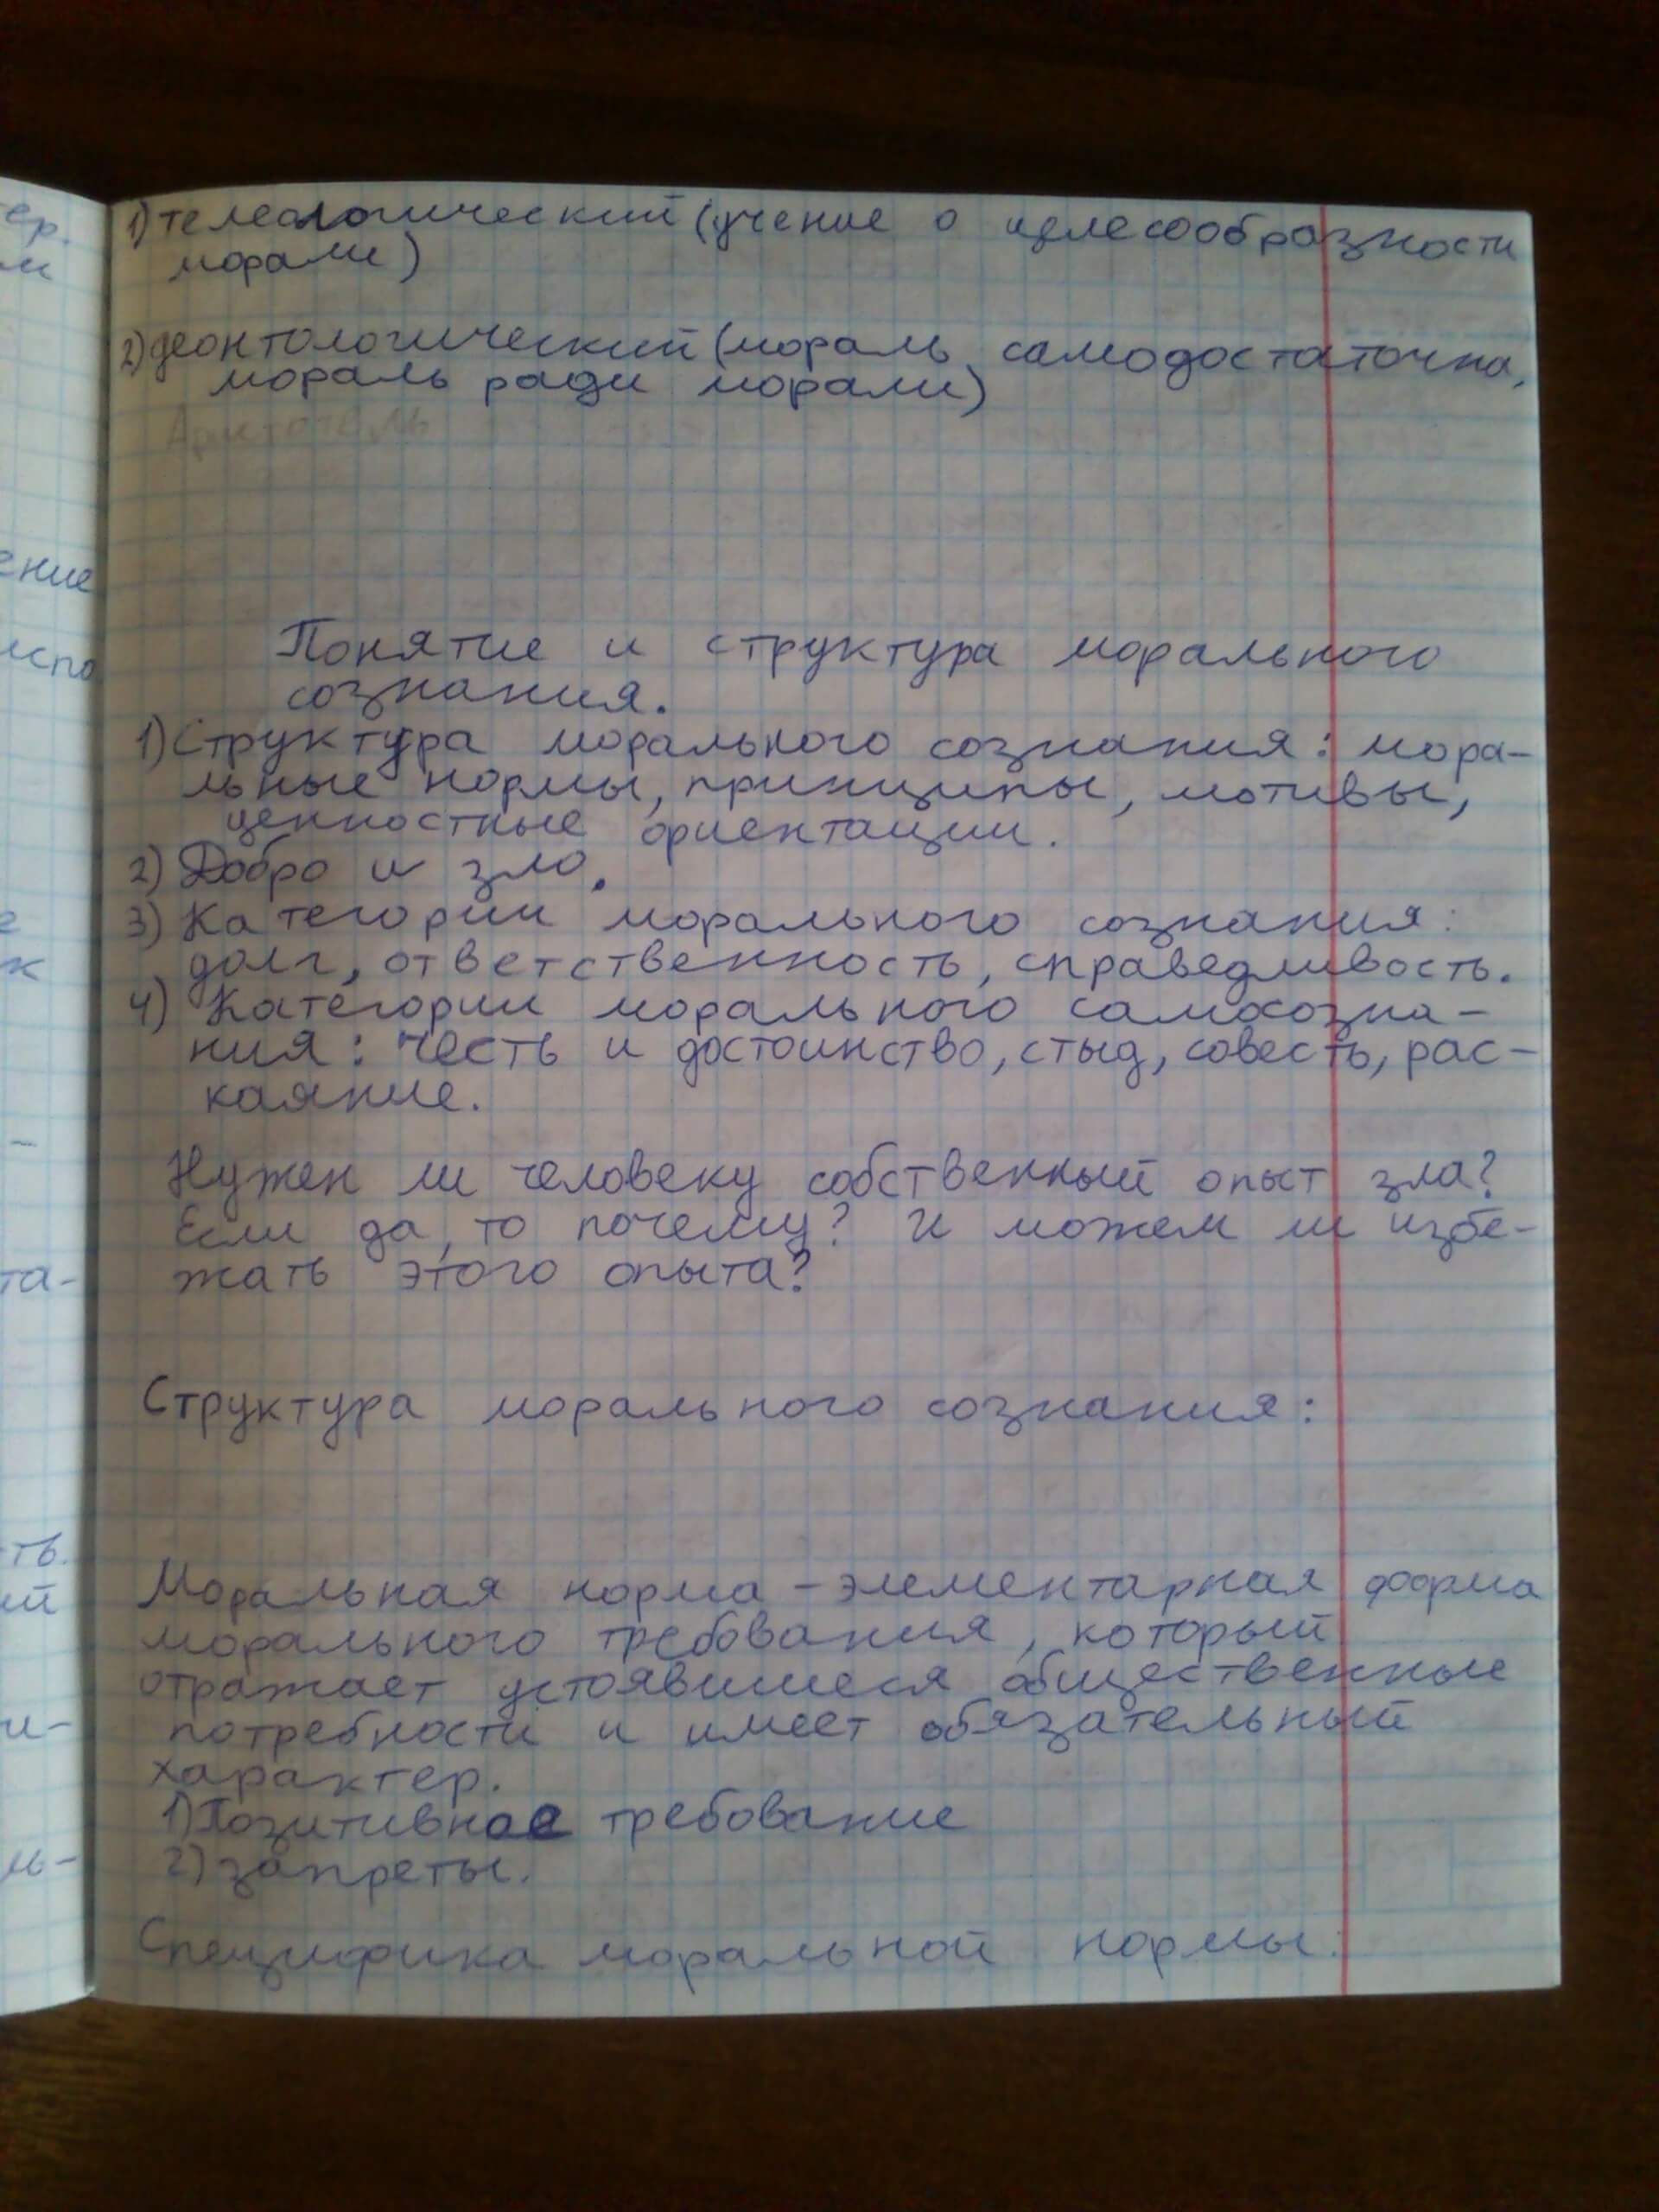 1) телеологический (учение о целесообразности
морали)
2) деонтологический (мораль самодостаточна,
мораль ради морали)
Аристотель
Понятие и структура морального
сознания.
1) Структура морального сознания: мора-
льные нормы, принципы, мотивы,
ценностные ориентации.
2) Добро и зло.
3) Категории морального сознания:
долг, ответственность, справедливость.
4) Категории морального самосозна-
ния: честь и достоинство, стыд, совесть, рас-
каяние.
Нужен ли человеку собственный опыт зла?
Если да, то почему? И можем ли избе-
жать этого опыта?
Структура морального сознания:
Моральная норма - элементарная форма
морального требования, который
отражает устоявшиеся общественные
потребности и имеет обязательный
характер.
1) Позитивное требование
2) запреты.
Специфика моральной нормы: